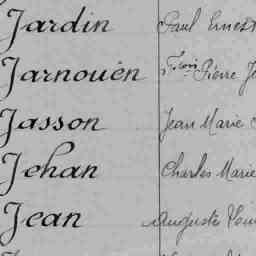 Jardin Paul Ernest
Jarnouën Fçois Pierre
Jasson Jean Marie
Jehan Charles Marie
Jean Auguste